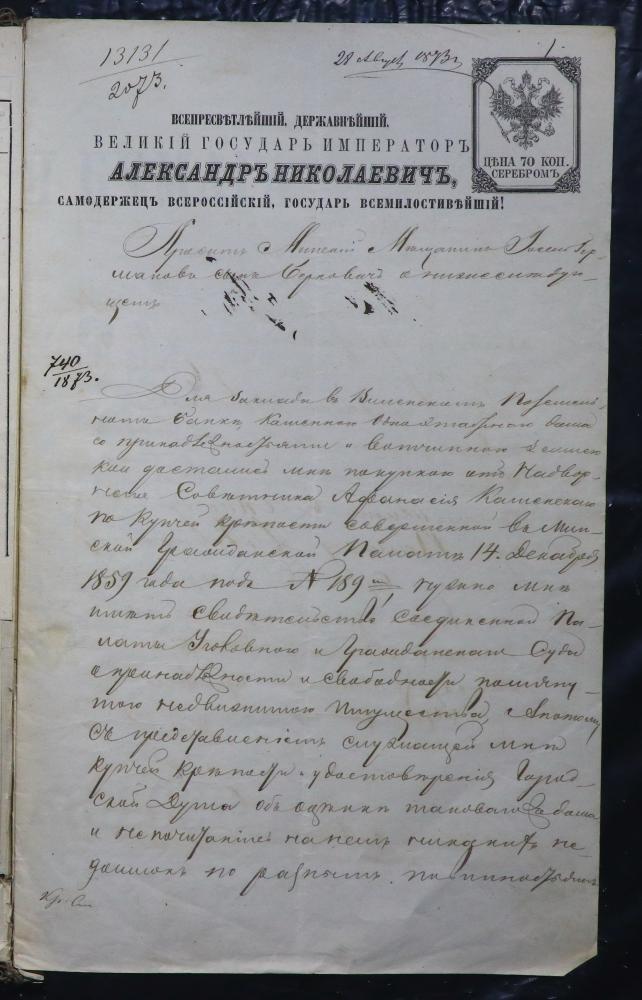 13131
2073.
28 Августа 1873 г.
1
ВСЕПРЕСВѢТЛѢЙШІЙ, ДЕРЖАВНѢЙШІЙ,
ВЕЛИКІЙ ГОСУДАРЬ ИМПЕРАТОРЪ
АЛЕКСАНДРЪ НИКОЛАЕВИЧЪ,
САМОДЕРЖЕЦЪ ВСЕРОССІЙСКІЙ, ГОСУДАРЬ ВСЕМИЛОСТИВѢЙШІЙ!
ЦѢНА 70 КОП.
СЕРЕБРОМЪ
Проситъ Минскій Мѣщанинъ
сынъ Берковичъ о нижеслѣдую-
щемъ
740
1873.
Для заклада въ Виленскомъ Поземель-
номъ Банкѣ каменного одноэтажного дома
со принадлежностями и вотчинною землею
кои достались мнѣ покупкою отъ Надвор-
ного Совѣтника Афанасія Каменского
по купчей крѣпости совершенной въ Мин-
ской Гражданской Палатѣ 14. Декабря
1859 года подъ № 189 нужно мнѣ
имѣть свидѣтельство Соединенной Па-
латы Уголовного и Гражданского Суда
о принадлежности и свободности помяну-
того недвижимого имущества, а потому
съ представленіемъ служащей мнѣ
купчей крѣпости и удостовѣренія Город-
ской Думы объ оцѣнкѣ таковаго дома
и не почитаніи на немъ никакихъ не-
доимокъ по разнымъ повинностямъ